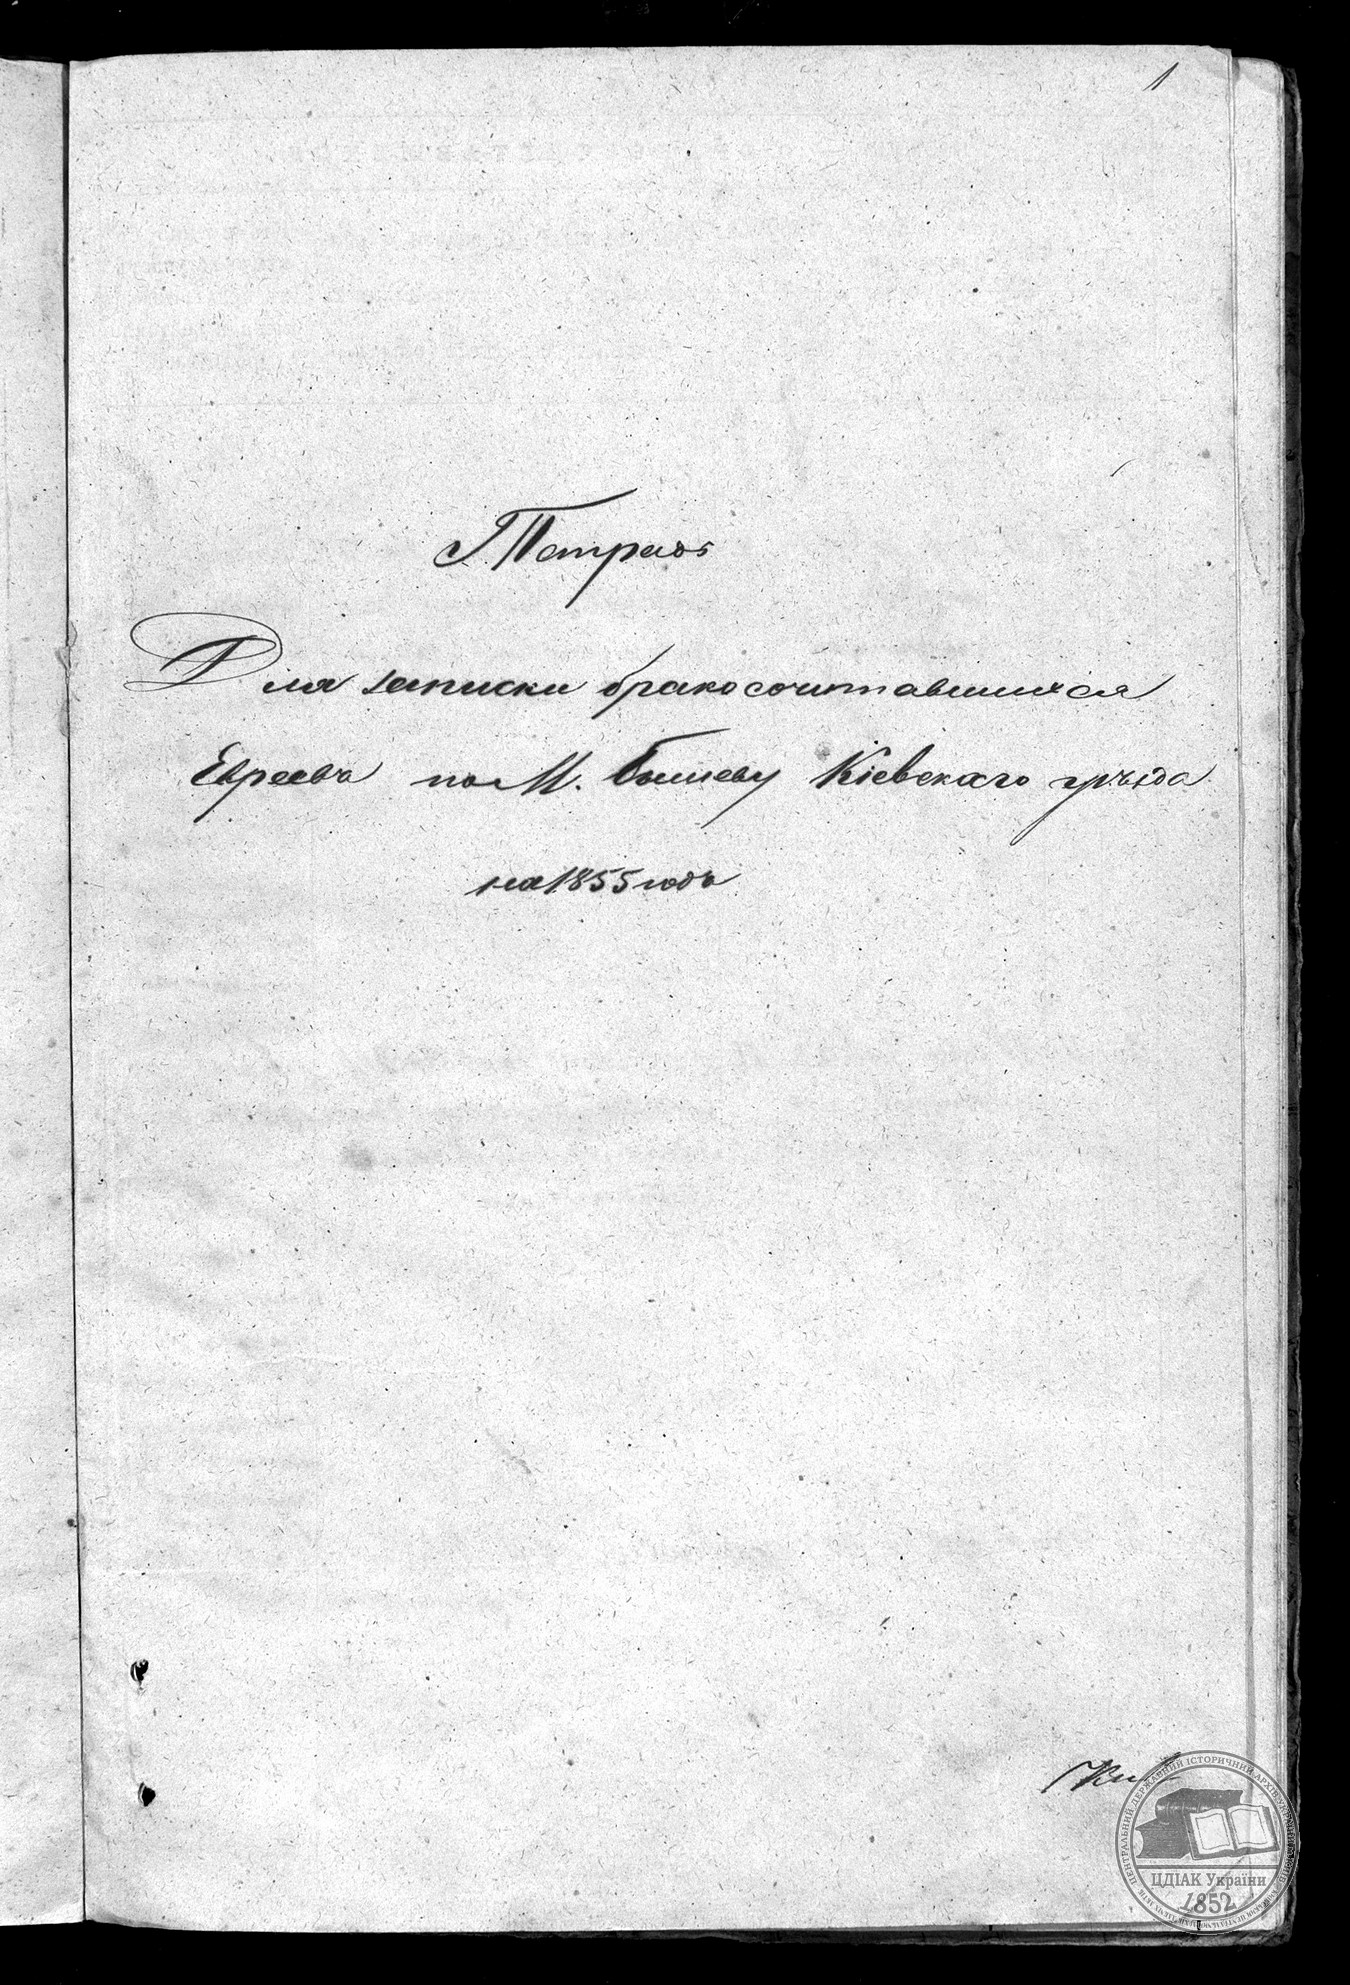 1
Тетрадь
Для записки бракосочитавшихся
Евреевъ по М. Бышеву Кіевскаго уѣзда
на 1855 годъ
ЦЕНТРАЛЬНИЙ ДЕРЖАВНИЙ ІСТОРИЧНИЙ АРХІВ УКРАЇНИ
ЦДІАК України
1852